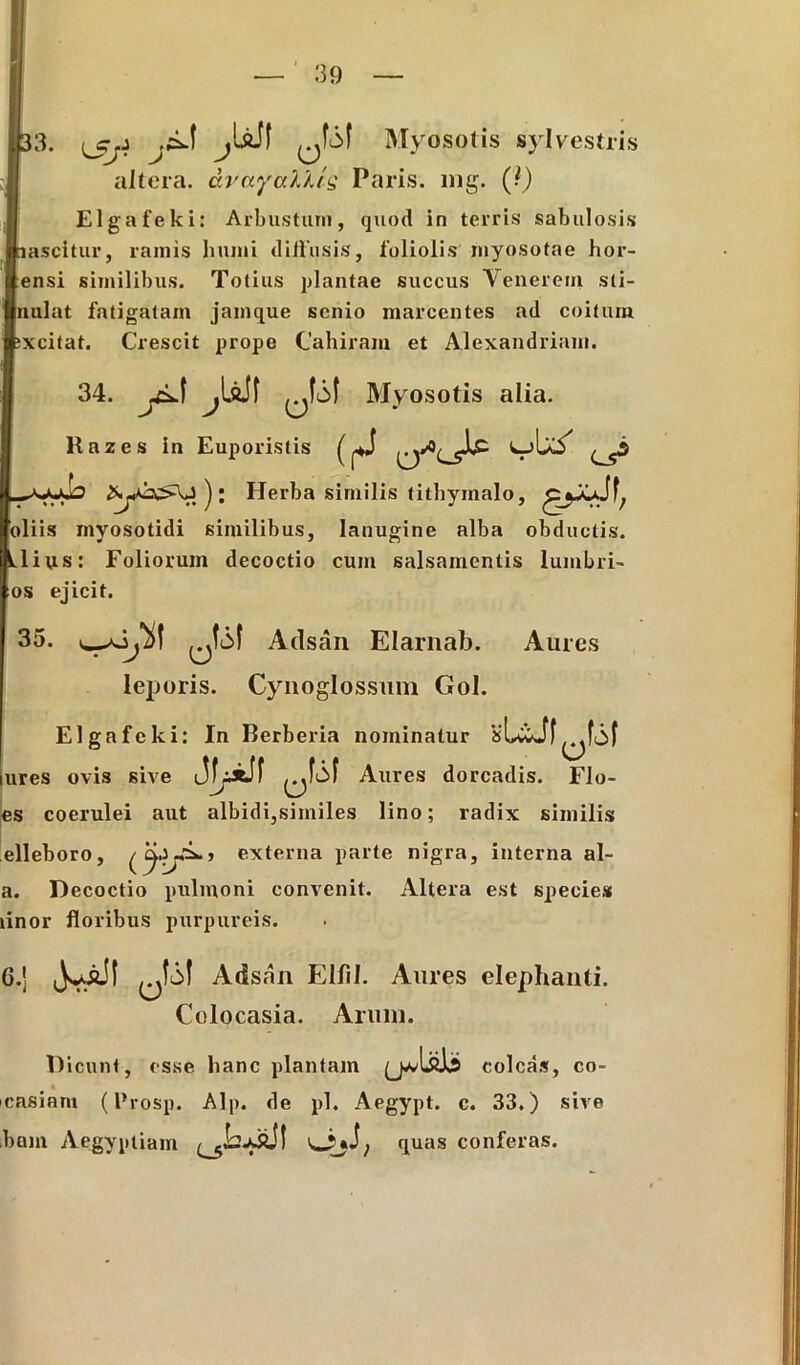 — 39 —
33. آذان الفار اخر بري Myosotis sylvestris
altera. ἀναγαλλίς Paris. mg. (?)
Elgafeki: Arbustum, quod in terris sabulosis
nascitur, ramis humi diffusis, foliolis myosotae hor-
ensi similibus. Totius plantae succus Venerem sti-
mulat fatigatam jamque senio marcentes ad coitum
excitat. Crescit prope Cahiram et Alexandriam.
34. آذان الفار اخر Myosotis alia.
Razes in Euporistis (في كتاب
): Herba similis tithymalo, اليتوع,
oliis myosotidi similibus, lanugine alba obductis.
Alius: Foliorum decoctio cum salsamentis lumbri-
os ejicit.
35. آذان الارنب Adsân Elarnab. Aures
leporis. Cynoglossum Gol.
Elgafeki: In Berberia nominatur آذان الشاة
ures ovis sive آذان الغزال Aures dorcadis. Flo-
es coerulei aut albidi,similes lino; radix similis
elleboro, (خربق, externa parte nigra, interna al-
a. Decoctio pulmoni convenit. Altera est species
inor floribus purpureis.
6.] آذان الفيل Adsân Elfil. Aures elephanti.
Colocasia. Arum.
Dicunt, esse hanc plantam قلقاس colcás, co-
casiam (Prosp. Alp. de pl. Aegypt. c. 33.) sive
bam Aegyptiam لوف القبطي, quas conferas.